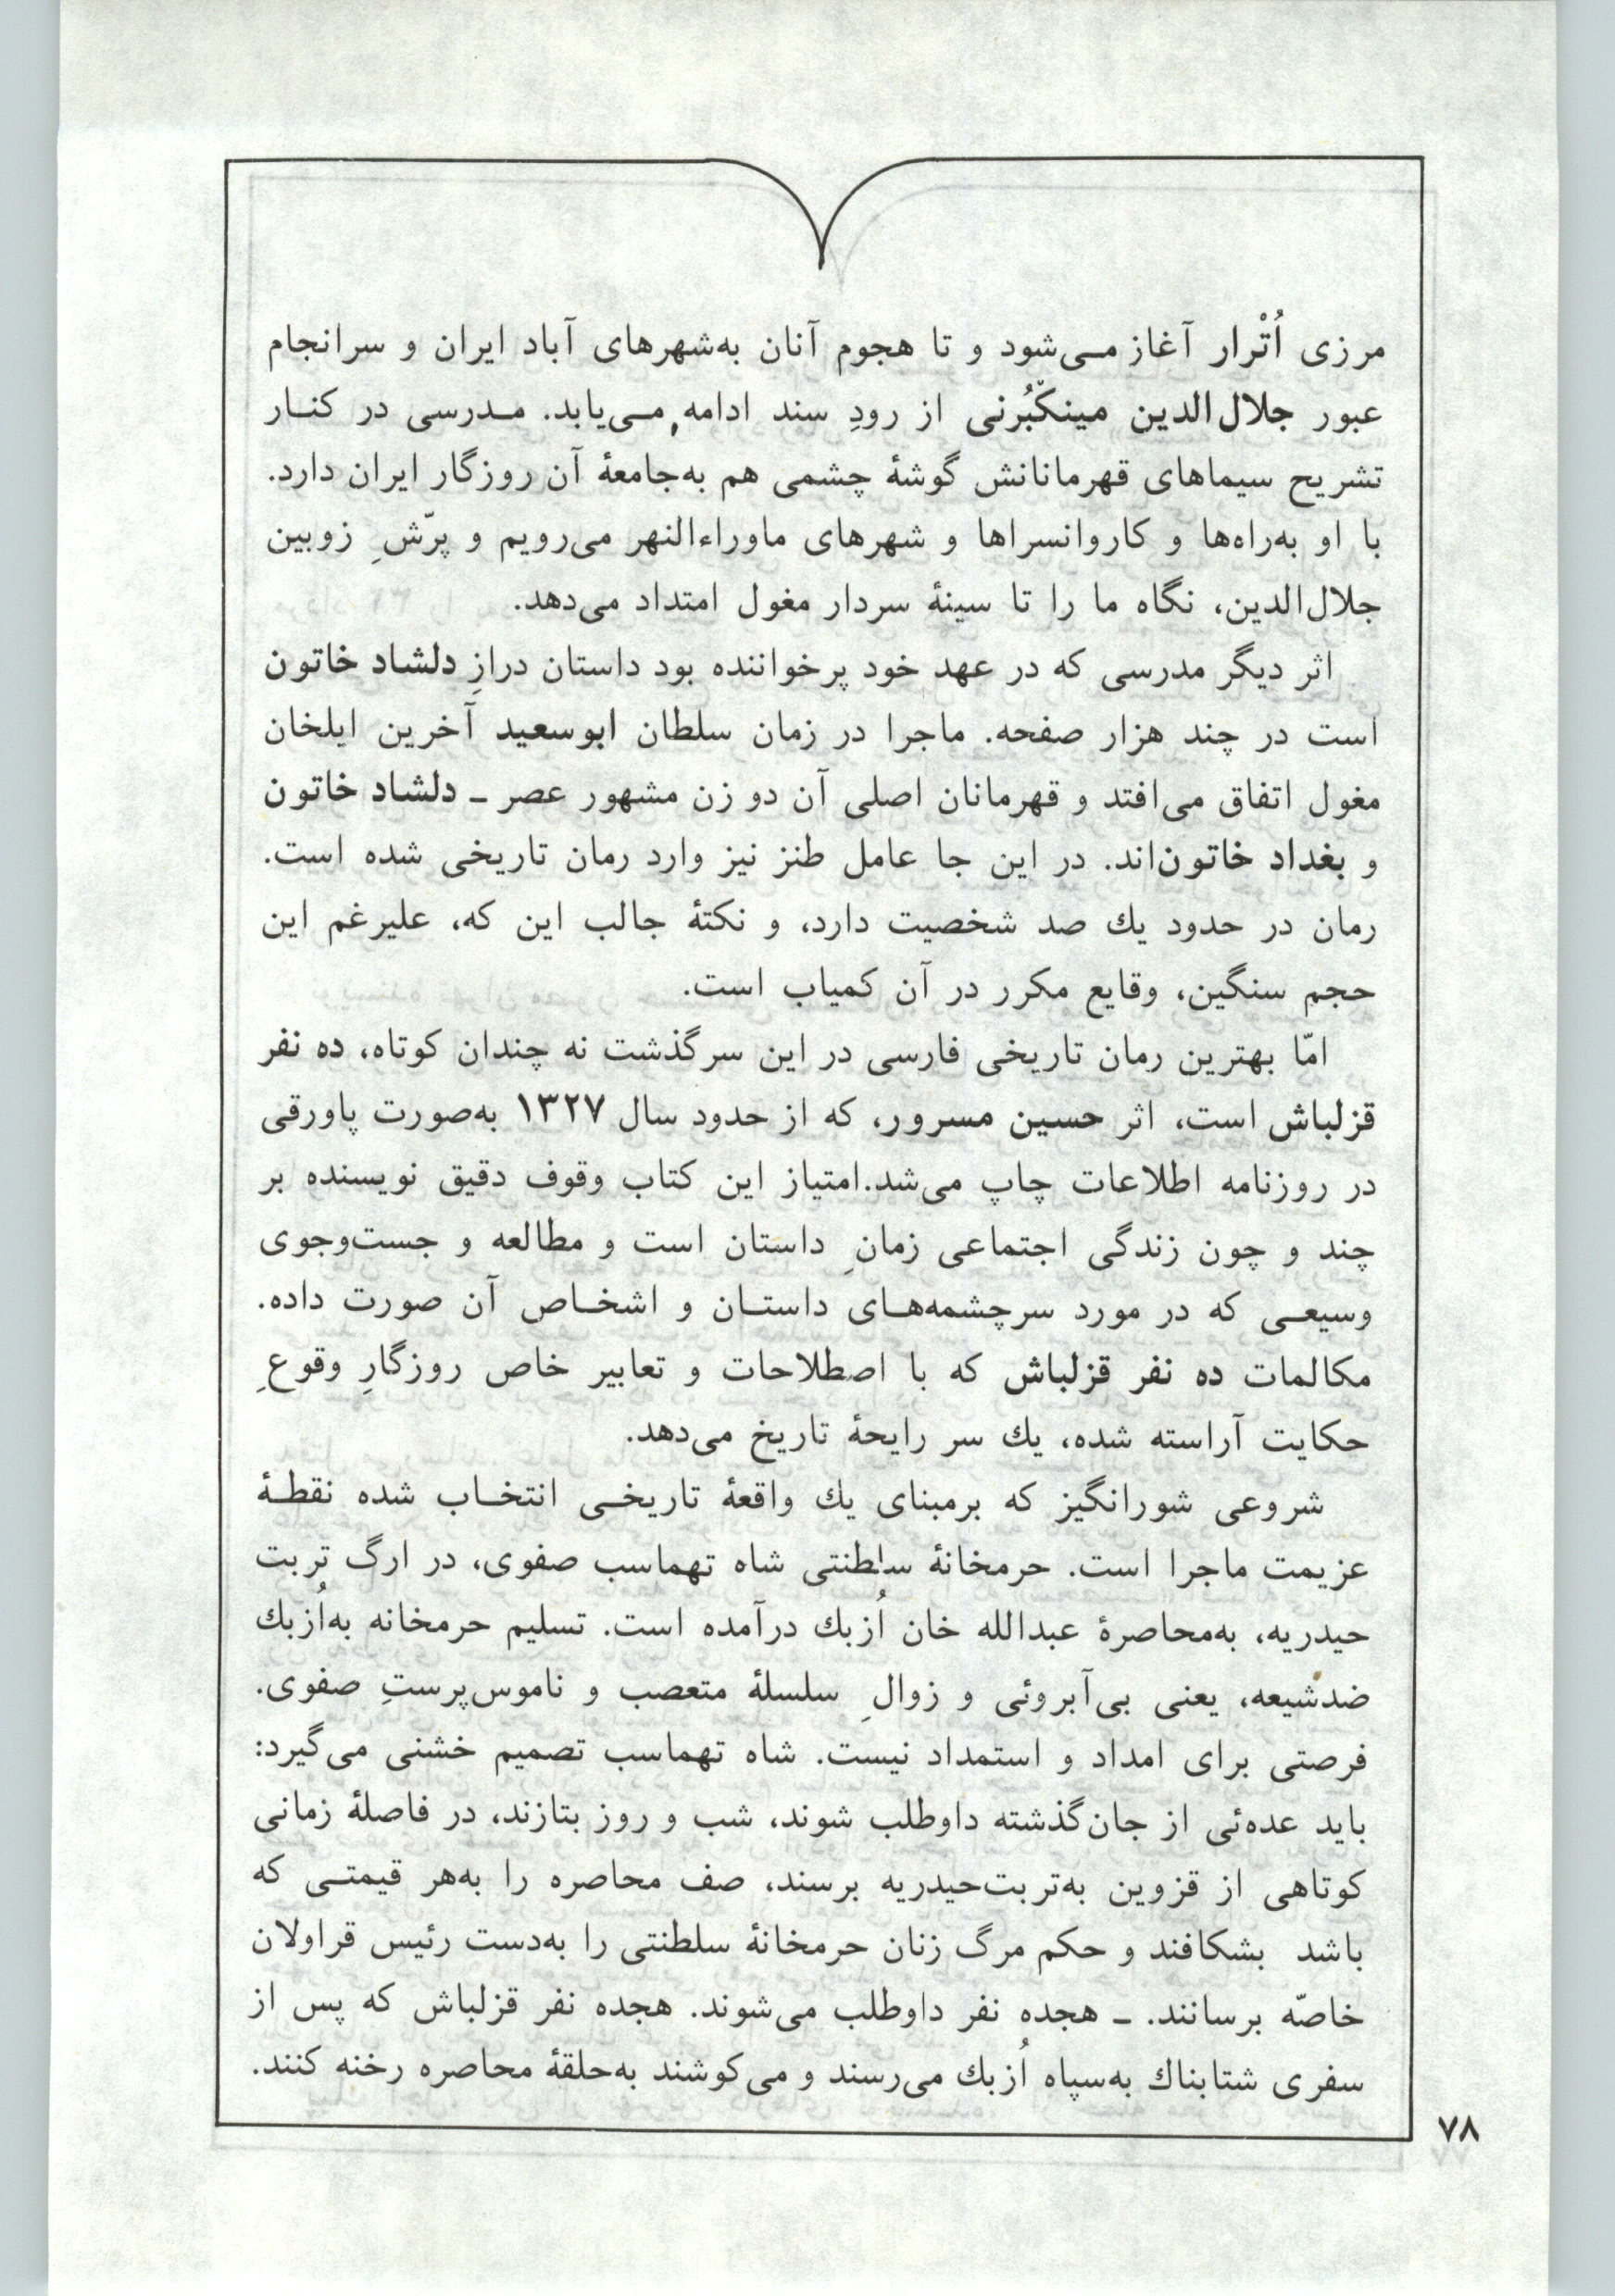 مرزی اُتْرار آغاز مـی‌شود و تا هجوم آنان به‌شهرهای آباد ایران و سرانجام
عبور جلال‌الدین مینکّبُرنی از رودِ سند ادامه مـی‌یابد. مـدرسی در کنـار
تشریح سیماهای قهرمانانش گوشهٔ چشمی هم به‌جامعهٔ آن روزگار ایران دارد.
با او به‌راه‌ها و کاروانسراها و شهرهای ماوراءالنهر می‌رویم و پرّشِ زوبین
جلال‌الدین، نگاه ما را تا سینهٔ سردار مغول امتداد می‌دهد.
اثر دیگر مدرسی که در عهد خود پرخواننده بود داستان درازِ دلشاد خاتون
است در چند هزار صفحه. ماجرا در زمان سلطان ابوسعید آخرین ایلخان
مغول اتفاق می‌افتد و قهرمانان اصلی آن دو زن مشهور عصر ـ دلشاد خاتون
و بغداد خاتون‌اند. در این جا عامل طنز نیز وارد رمان تاریخی شده است.
رمان در حدود یك صد شخصیت دارد، و نکتهٔ جالب این که، علیرغم این
حجم سنگین، وقایع مکرر در آن کمیاب است.
امّا بهترین رمان تاریخی فارسی در این سرگذشت نه چندان کوتاه، ده نفر
قزلباش است، اثر حسین مسرور، که از حدود سال ۱۳۲۷ به‌صورت پاورقی
در روزنامه اطلاعات چاپ می‌شد.امتیاز این کتاب وقوف دقیق نویسنده بر
چند و چون زندگی اجتماعی زمانِ داستان است و مطالعه و جست‌وجوی
وسیعـی که در مورد سرچشمه‌هـای داستـان و اشخـاص آن صورت داده.
مکالمات ده نفر قزلباش که با اصطلاحات و تعابیر خاص روزگارِ وقوعِ
حکایت آراسته شده، یك سر رایحهٔ تاریخ می‌دهد.
شروعی شورانگیز که برمبنای یك واقعهٔ تاریخـی انتخـاب شده نقطـهٔ
عزیمت ماجرا است. حرمخانهٔ سلطنتی شاه تهماسب صفوی، در ارگ تربت
حیدریه، به‌محاصرهٔ عبدالله خان اُزبك درآمده است. تسلیم حرمخانه به‌اُزبك
ضدشیعه، یعنی بی‌آبروئی و زوالِ سلسلهٔ متعصب و ناموس‌پرستِ صفوی.
فرصتی برای امداد و استمداد نیست. شاه تهماسب تصمیم خشنی می‌گیرد:
باید عده‌ئی از جان‌گذشته داوطلب شوند، شب و روز بتازند، در فاصلهٔ زمانی
کوتاهی از قزوین به‌تربت‌حیدریه برسند، صف محاصره را به‌هر قیمتـی که
باشد بشکافند و حکم مرگ زنان حرمخانهٔ سلطنتی را به‌دست رئیس قراولان
خاصّه برسانند. ـ هجده نفر داوطلب می‌شوند. هجده نفر قزلباش که پس از
سفری شتابناك به‌سپاه اُزبك می‌رسند و می‌کوشند به‌حلقهٔ محاصره رخنه کنند.
۷۸